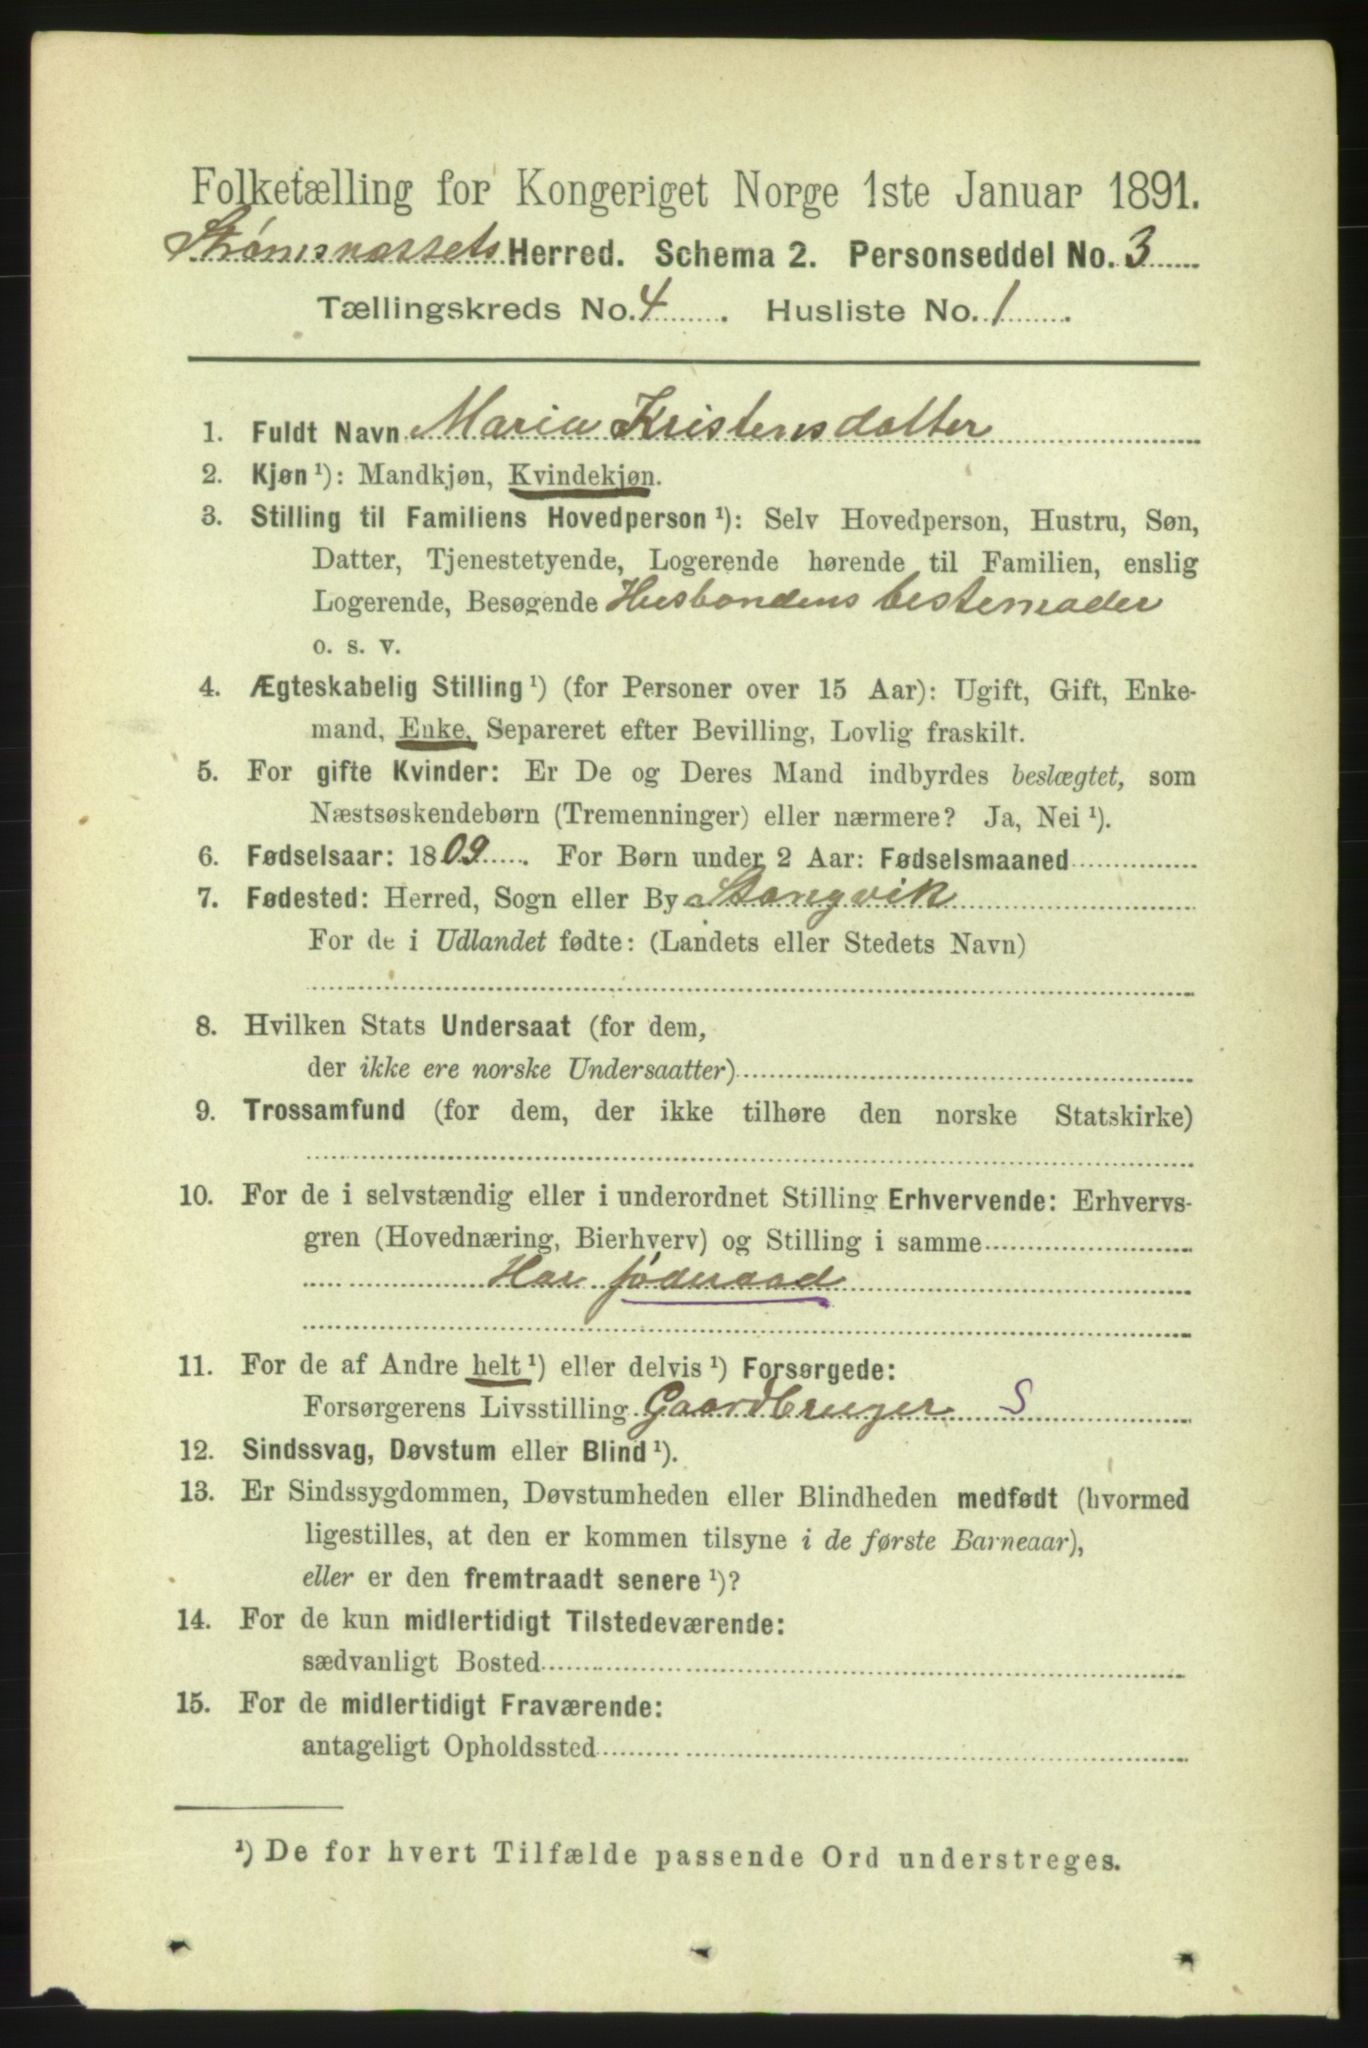 Folketælling for Kongeriget Norge 1ste Januar 1891.
Strømsnæssets Herred. Schema 2. Personseddel No. 3
Tællingskreds No. 4. Husliste No. 1.
1. Fuldt Navn Maria Kristensdatter
2. Kjøn ¹): Mandkjøn, Kvindekjøn.
3. Stilling til Familiens Hovedperson ¹): Selv Hovedperson, Hustru, Søn,
Datter, Tjenestetyende, Logerende hørende til Familien, enslig
Logerende, Besøgende Husbondens bestemoder
o. s. v.
4. Ægteskabelig Stilling ¹) (for Personer over 15 Aar): Ugift, Gift, Enke-
mand, Enke, Separeret efter Bevilling, Lovlig fraskilt.
5. For gifte Kvinder: Er De og Deres Mand indbyrdes beslægtet, som
Næstsøskendebørn (Tremenninger) eller nærmere? Ja, Nei ¹).
6. Fødselsaar: 1809. For Børn under 2 Aar: Fødselsmaaned
7. Fødested: Herred, Sogn eller By Stangvik
For de i Udlandet fødte: (Landets eller Stedets Navn)
8. Hvilken Stats Undersaat (for dem,
der ikke ere norske Undersaatter)
9. Trossamfund (for dem, der ikke tilhøre den norske Statskirke)
10. For de i selvstændig eller i underordnet Stilling Erhvervende: Erhvervs-
gren (Hovednæring, Bierhverv) og Stilling i samme
Har føderaad
11. For de af Andre helt ¹) eller delvis ¹) Forsørgede:
Forsørgerens Livsstilling Gaardbruger S
12. Sindssvag, Døvstum eller Blind ¹).
13. Er Sindssygdommen, Døvstumheden eller Blindheden medfødt (hvormed
ligestilles, at den er kommen tilsyne i de første Barneaar),
eller er den fremtraadt senere ¹)?
14. For de kun midlertidigt Tilstedeværende:
sædvanligt Bosted
15. For de midlertidigt Fraværende:
antageligt Opholdssted
¹) De for hvert Tilfælde passende Ord understreges.